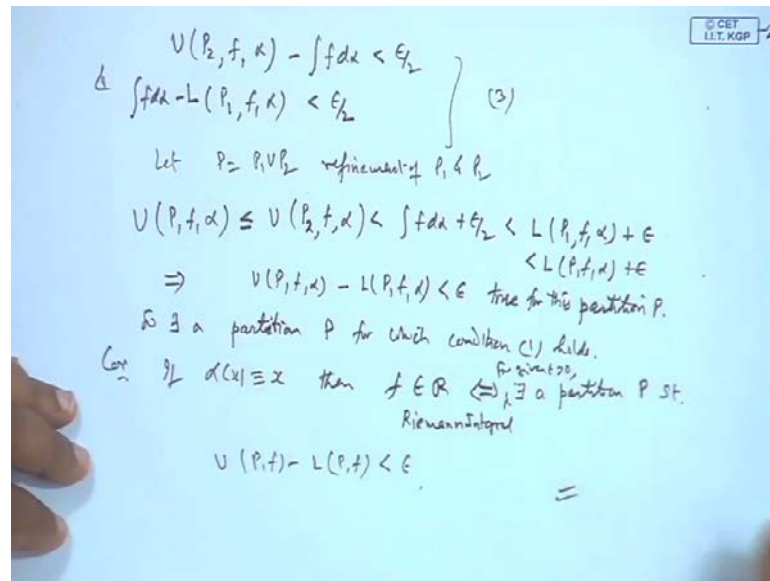 © CET
I.I.T. KGP
U(P₂, f, α) - ∫fdα < ε/2
& ∫fdα - L(P₁, f, α) < ε/2 } (3)
Let P = P₁ ∪ P₂ refinement of P₁ & P₂
U(P, f, α) ≤ U(P₂, f, α) < ∫fdα + ε/2 < L(P₁, f, α) + ε
< L(P, f, α) + ε
⇒ U(P, f, α) - L(P, f, α) < ε true for this partition P.
So ∃ a partition P for which condition (1) holds.
Cor If α(x) ≡ x then f ∈ R ⇔ for given ε>0, ∃ a partition P st.
Riemann Integral
U(P, f) - L(P, f) < ε.
=